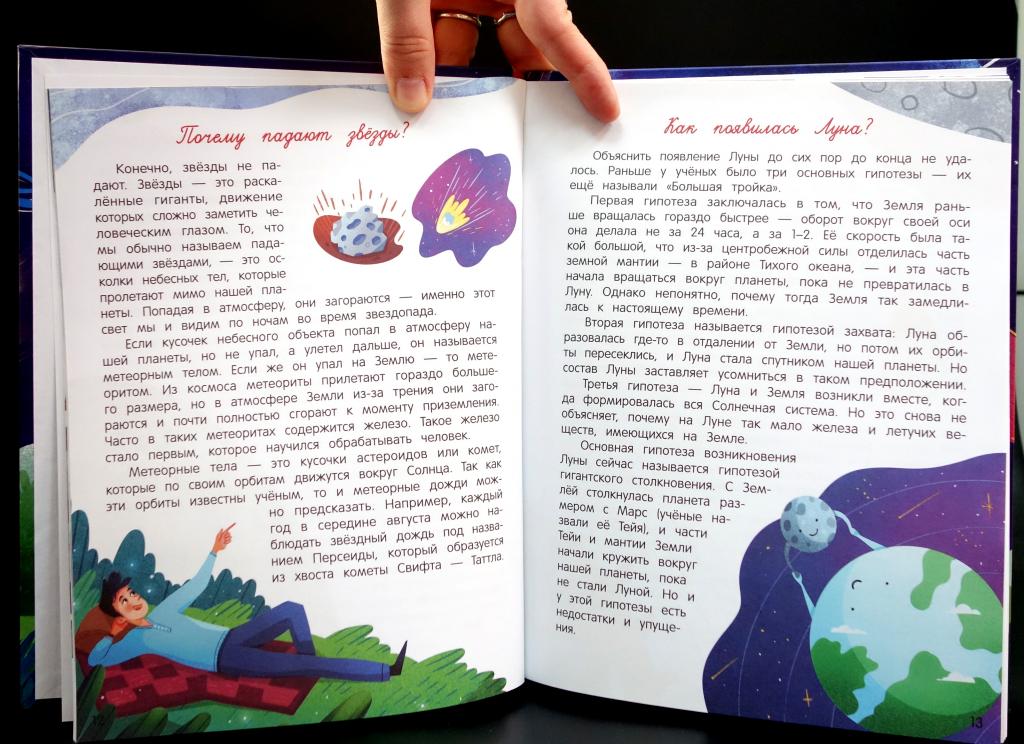 Почему падают звёзды?
Конечно, звёзды не па-
дают. Звёзды — это раска-
лённые гиганты, движение
которых сложно заметить че-
ловеческим глазом. То, что
мы обычно называем пада-
ющими звёздами, — это ос-
колки небесных тел, которые
пролетают мимо нашей пла-
неты. Попадая в атмосферу, они загораются — именно этот
свет мы и видим по ночам во время звездопада.
Если кусочек небесного объекта попал в атмосферу на-
шей планеты, но не упал, а улетел дальше, он называется
метеорным телом. Если же он упал на Землю — то мете-
оритом. Из космоса метеориты прилетают гораздо больше-
го размера, но в атмосфере Земли из-за трения они заго-
раются и почти полностью сгорают к моменту приземления.
Часто в таких метеоритах содержится железо. Такое железо
стало первым, которое научился обрабатывать человек.
Метеорные тела — это кусочки астероидов или комет,
которые по своим орбитам движутся вокруг Солнца. Так как
эти орбиты известны учёным, то и метеорные дожди мож-
но предсказать. Например, каждый
год в середине августа можно на-
блюдать звёздный дождь под назва-
нием Персеиды, который образуется
из хвоста кометы Свифта — Таттла.
12
Как появилась Луна?
Объяснить появление Луны до сих пор до конца не уда-
лось. Раньше у учёных было три основных гипотезы — их
ещё называли «Большая тройка».
Первая гипотеза заключалась в том, что Земля рань-
ше вращалась гораздо быстрее — оборот вокруг своей оси
она делала не за 24 часа, а за 1–2. Её скорость была та-
кой большой, что из-за центробежной силы отделилась часть
земной мантии — в районе Тихого океана, — и эта часть
начала вращаться вокруг планеты, пока не превратилась в
Луну. Однако непонятно, почему тогда Земля так замедли-
лась к настоящему времени.
Вторая гипотеза называется гипотезой захвата: Луна об-
разовалась где-то в отдалении от Земли, но потом их орби-
ты пересеклись, и Луна стала спутником нашей планеты. Но
состав Луны заставляет усомниться в таком предположении.
Третья гипотеза — Луна и Земля возникли вместе, ког-
да формировалась вся Солнечная система. Но это снова не
объясняет, почему на Луне так мало железа и летучих ве-
ществ, имеющихся на Земле.
Основная гипотеза возникновения
Луны сейчас называется гипотезой
гигантского столкновения. С Зем-
лёй столкнулась планета раз-
мером с Марс (учёные на-
звали её Тейя), и части
Тейи и мантии Земли
начали кружить вокруг
нашей планеты, пока
не стали Луной. Но и
у этой гипотезы есть
недостатки и упуще-
ния.
13